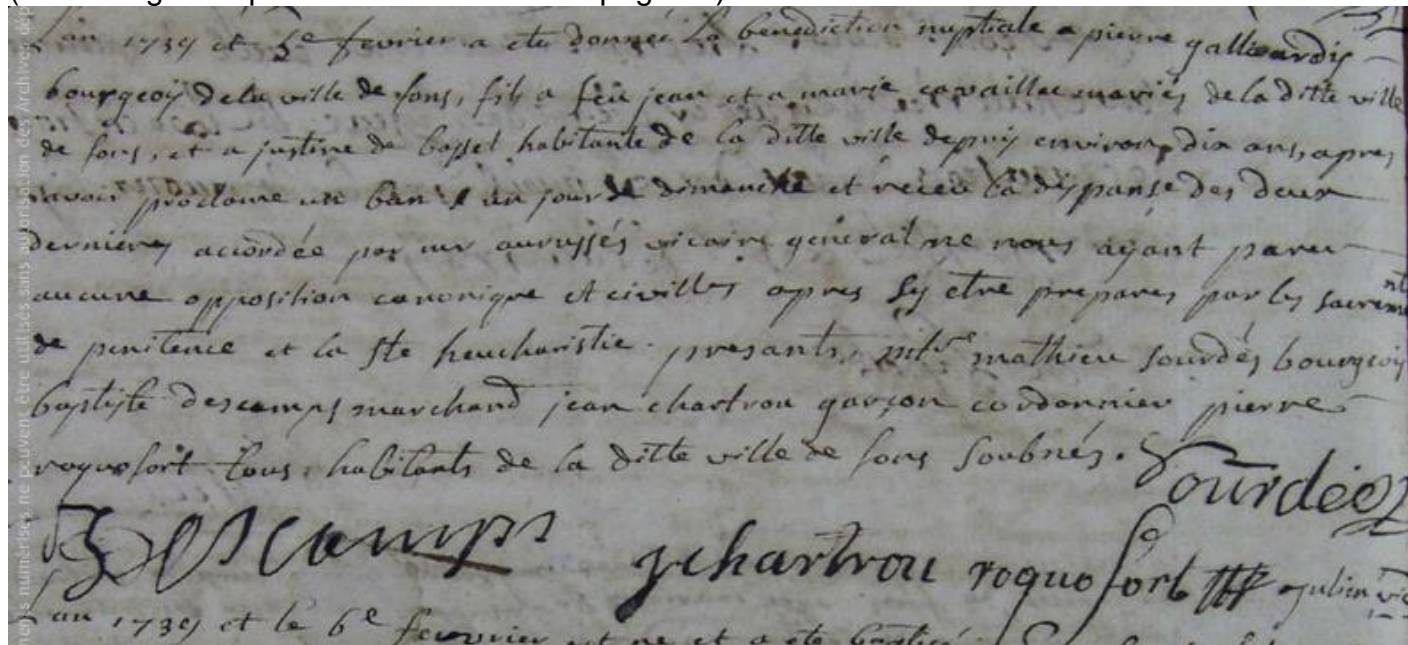 L'an 1739 et 5e fevrier a ete donnée la benediction nuptiale a pierre galliardis
bourgeois de la ville de fons, fils a feu jean et a marie cavaillac mariés de la ditte ville
de fons, et a justine de basset habitante de la ditte ville depuis environ dix ans, apres
avoir proclamé un ban un jour de dimanche et receu la dispanse des deux
derniers accordée par mr vicaire général ne nous ayant paru
aucune opposition canonique et civilles apres sy etre preparés par les sacremnt
de penitence et la ste heucharistie. presants, mathieu sourdés bourgeois
baptiste descamps marchand jean chartrou garçon cordonnier pierre
roquefort tous habitants de la ditte ville de fons soubnés. Sourdés
Descamps
jchartrou roquefort julien vic
L'an 1739 et le 6e fevrier est ne et a ete baptisé